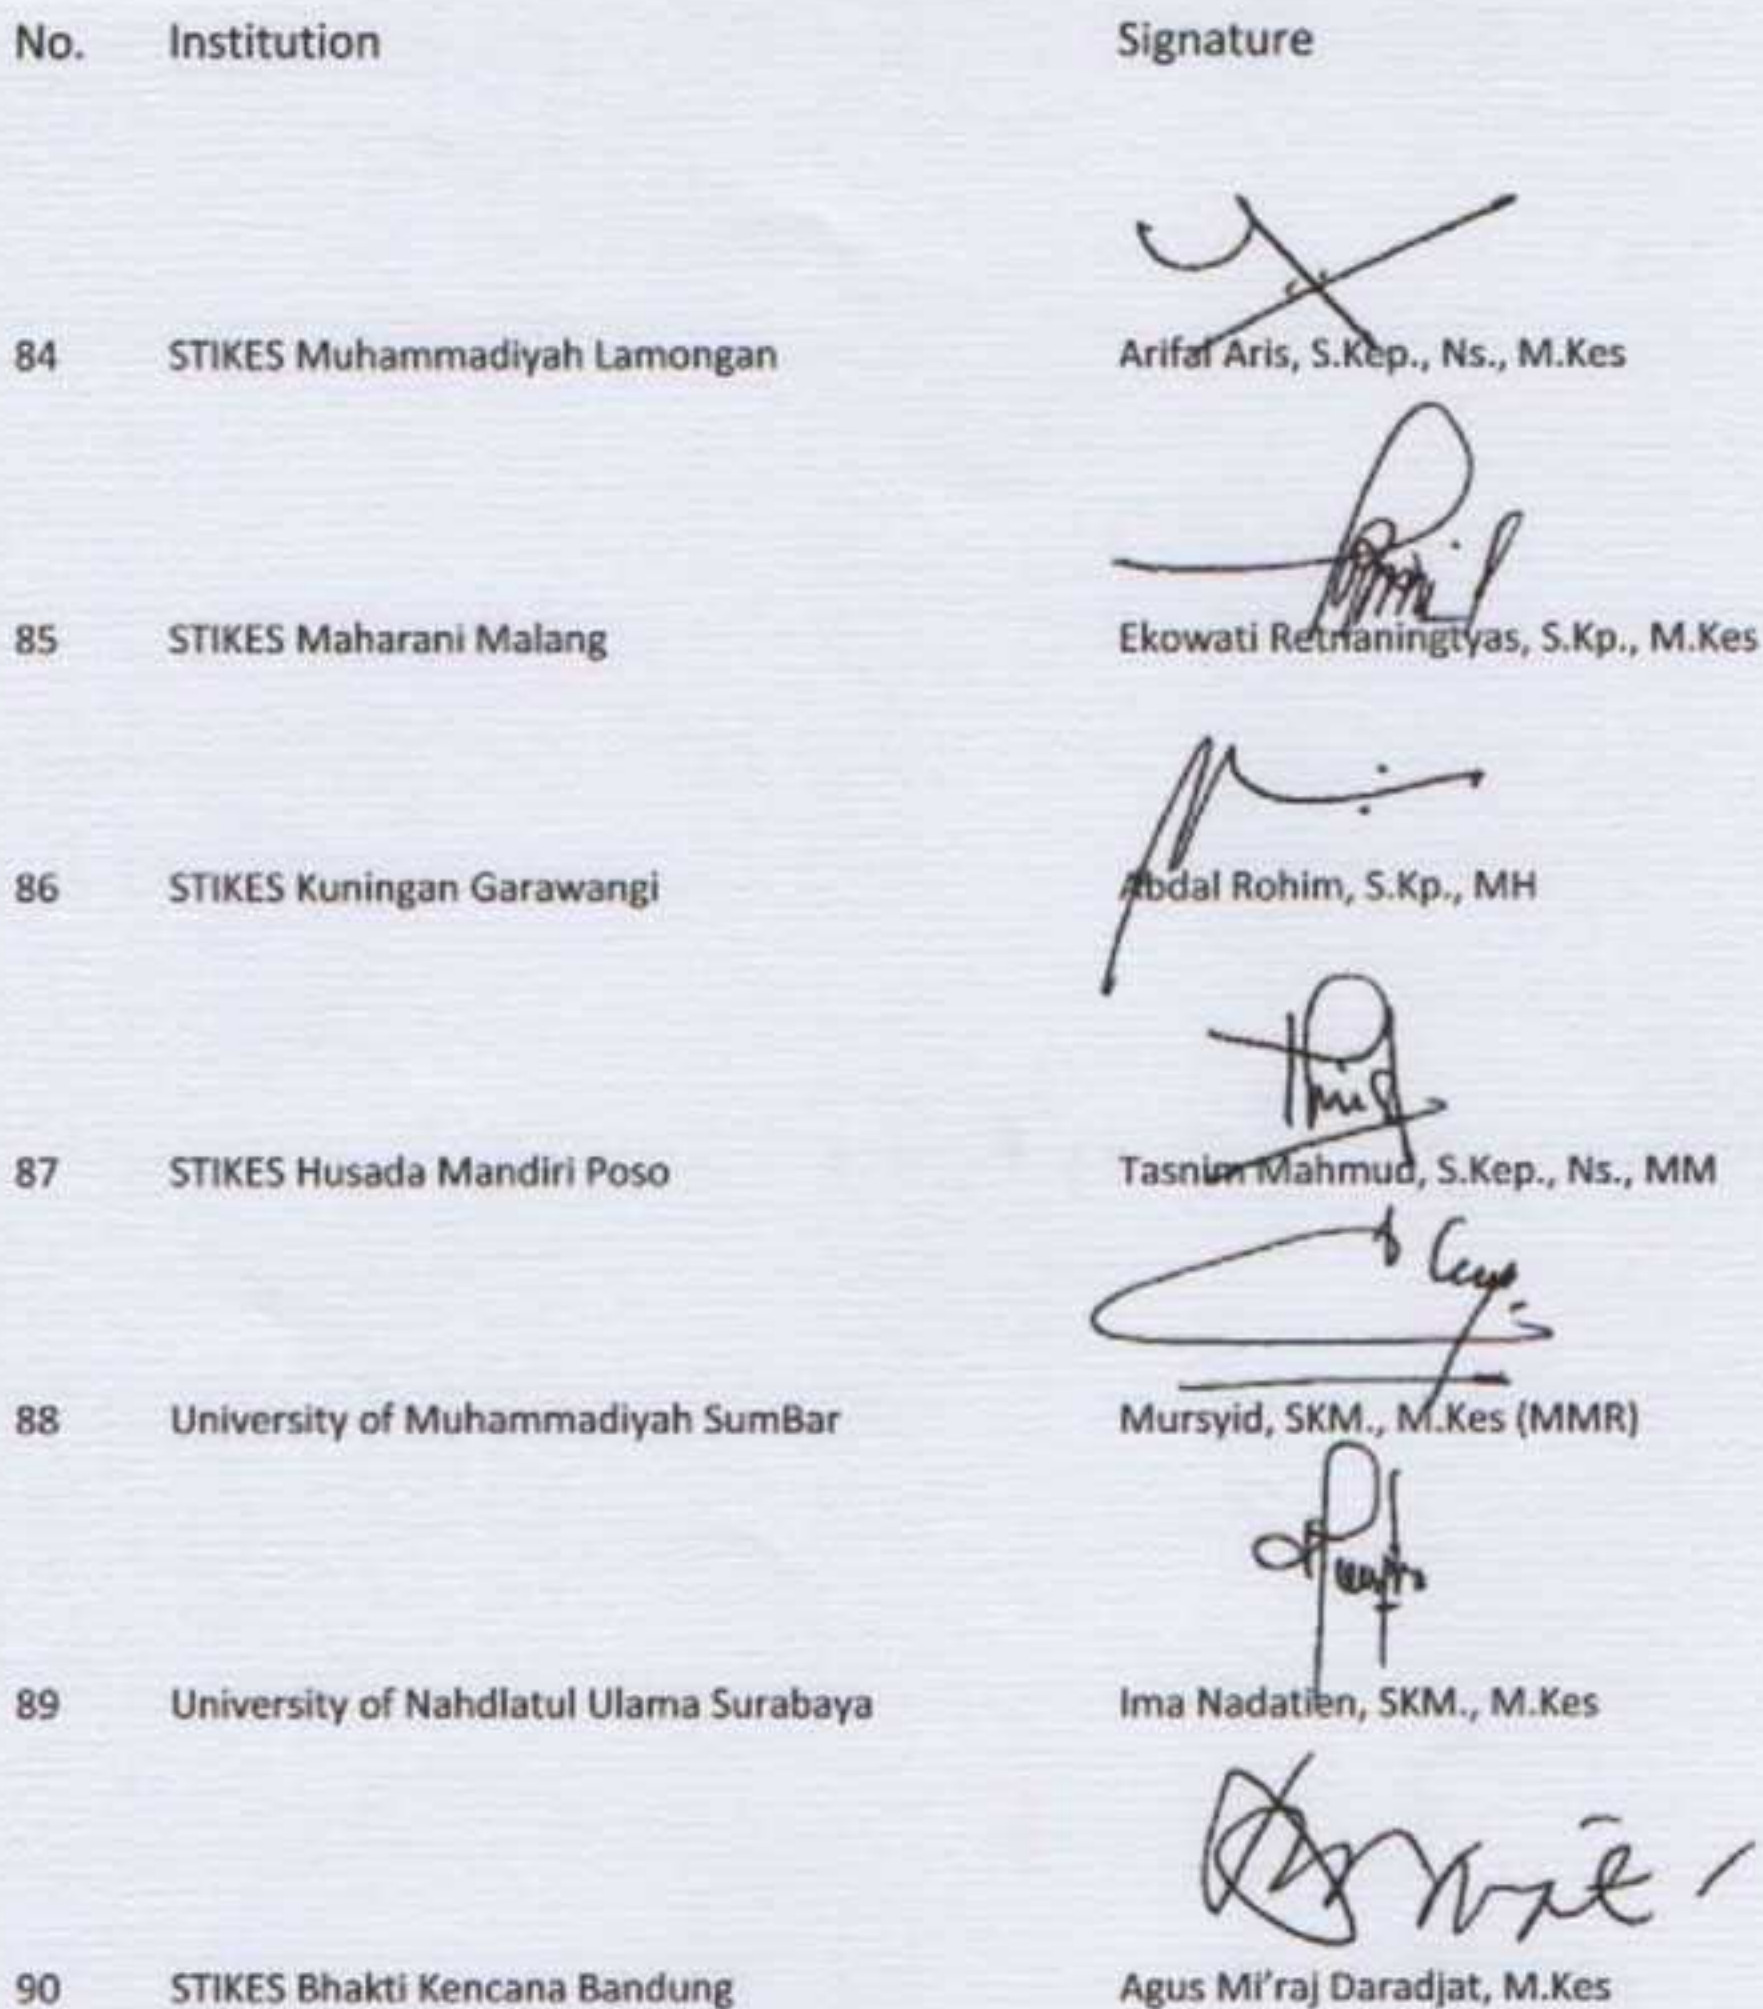 No. Institution Signature
84 STIKES Muhammadiyah Lamongan Arifal Aris, S.Kep., Ns., M.Kes
85 STIKES Maharani Malang Ekowati Retnaningtyas, S.Kp., M.Kes
86 STIKES Kuningan Garawangi Abdal Rohim, S.Kp., MH
87 STIKES Husada Mandiri Poso Tasnim Mahmud, S.Kep., Ns., MM
88 University of Muhammadiyah SumBar Mursyid, SKM., M.Kes (MMR)
89 University of Nahdlatul Ulama Surabaya Ima Nadatien, SKM., M.Kes
90 STIKES Bhakti Kencana Bandung Agus Mi'raj Daradjat, M.Kes